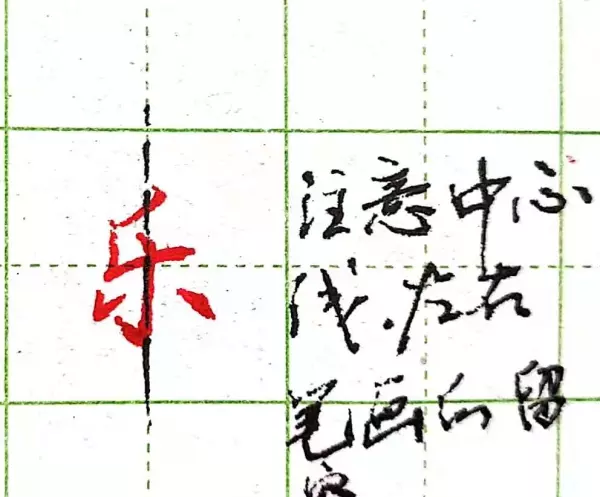 乐
注意中心
线.左右
笔画的留